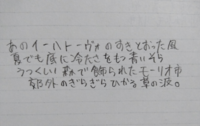 あのイーハトーヴォのすきとおった風
夏でも底に冷たさをもつ青いそら
うつくしい森で飾られたモーリオ市
郊外のぎらぎらひかる草の波。